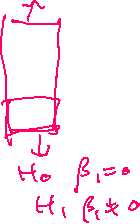 H₀ β₁=0
H₁ β₁≠0